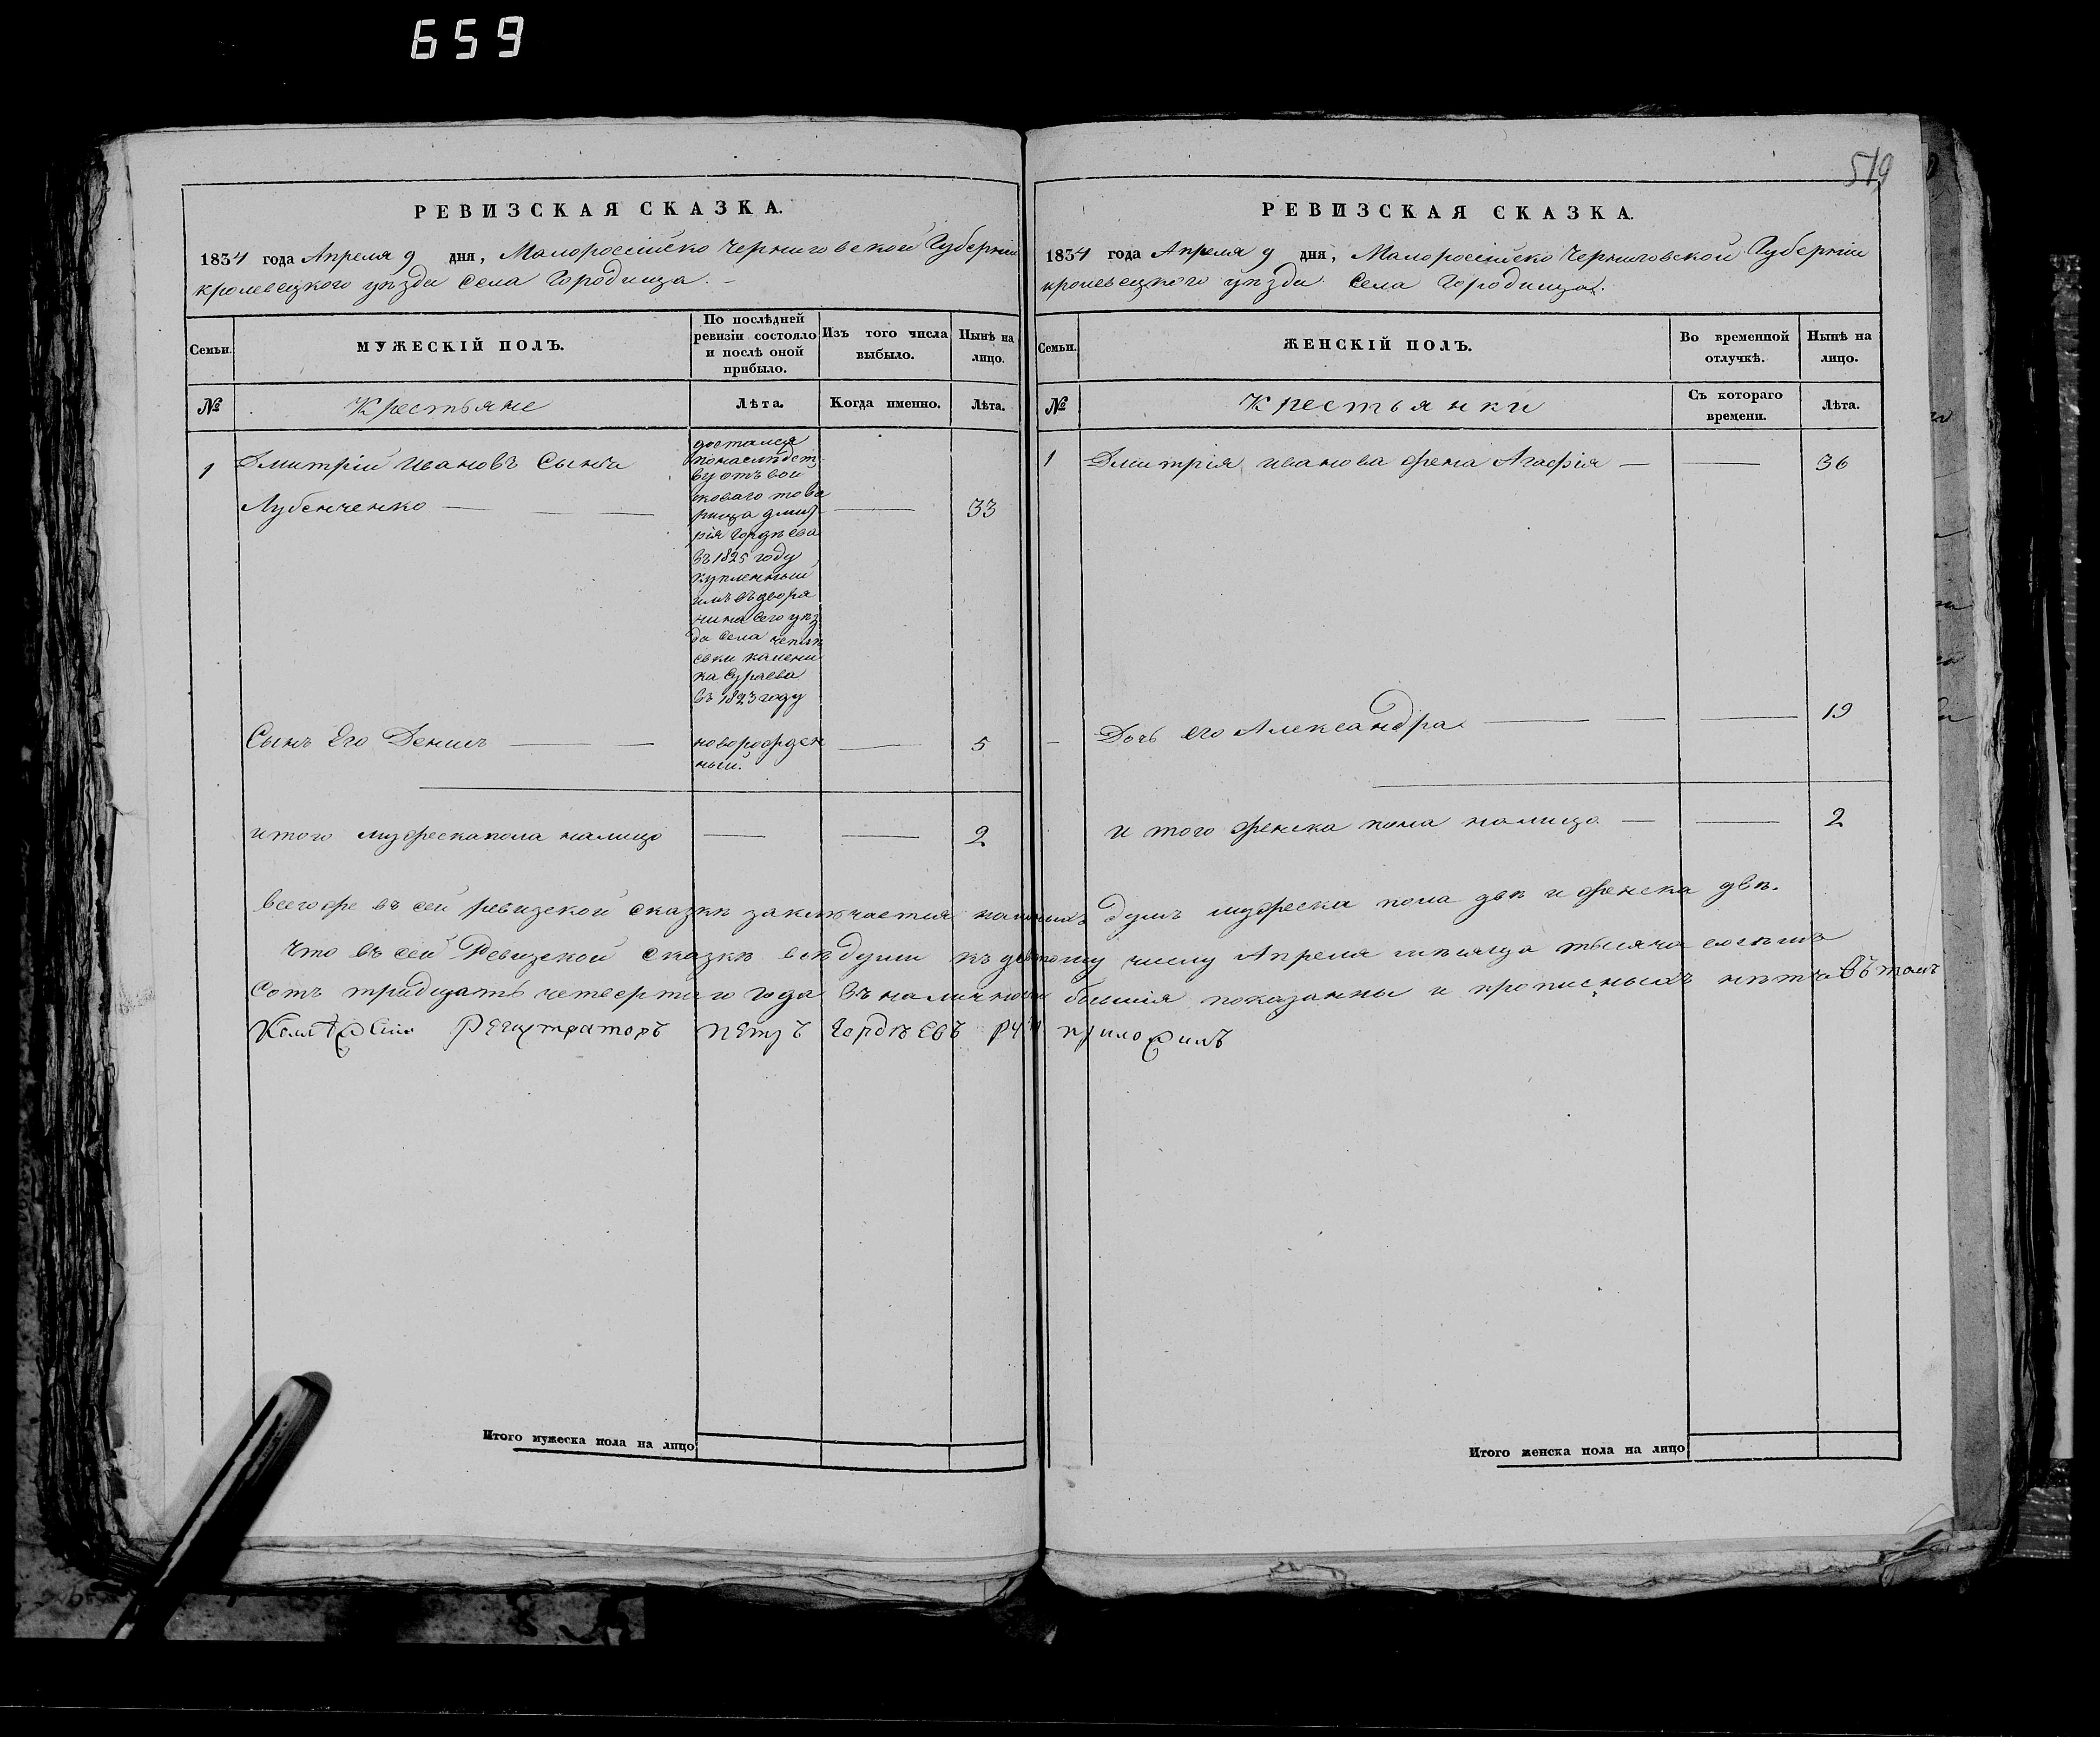 659
519
РЕВИЗСКАЯ СКАЗКА.
1834 года Апреля 9 дня, Малоросcійско Черниговской Губерніи
кролевецкого уѣзда Села Городища.
Семьи.
МУЖЕСКІЙ ПОЛЪ.
По послѣдней
ревизіи состояло
и послѣ оной
прибыло.
Изъ того числа
выбыло.
Нынѣ на
лицо.
№
Крестьяне
Лѣта.
Когда именно.
Лѣта.
1
Дмитрій Ивановъ Сынъ
Лубенченко
достался
понаслѣдст
ву отъ вой
сковаго това
рища дмит
рія Гордѣева
въ 1825 году
купленный
имъ въ дворя
нина сего уѣз
да села
въ 1823 году
33
Сынъ Его Денисъ
новорожден
ный.
5
итого мужеска пола налицо
2
РЕВИЗСКАЯ СКАЗКА.
1834 года Апреля 9 дня, Малоросcійско Черниговской Губерніи
кролевецкого уѣзда Села Городища.
Семьи.
ЖЕНСКІЙ ПОЛЪ.
Во временной
отлучкѣ.
Нынѣ на
лицо.
№
Крестьянки
Съ котораго
времени.
Лѣта.
1
Дмитрія Иванова жена Агафія
36
Дочь его Александра
19
и того женска пола налицо
2
всегоже въ сей ревизской сказкѣ заключается наличныхъ душъ мужеска пола двѣ и женска двѣ.
Что въ сей Ревизской сказкѣ всѣ души къ девятому числу Апреля мѣсяца тысяча восемъ
Сотъ тридцать четвертаго года въ наличности бывшія показанны и прописныхъ нѣтъ Въ томъ
Колѣжскій Регистраторъ Петръ Гордѣевъ руку приложилъ
Итого мужеска пола на лицо
Итого женска пола на лицо